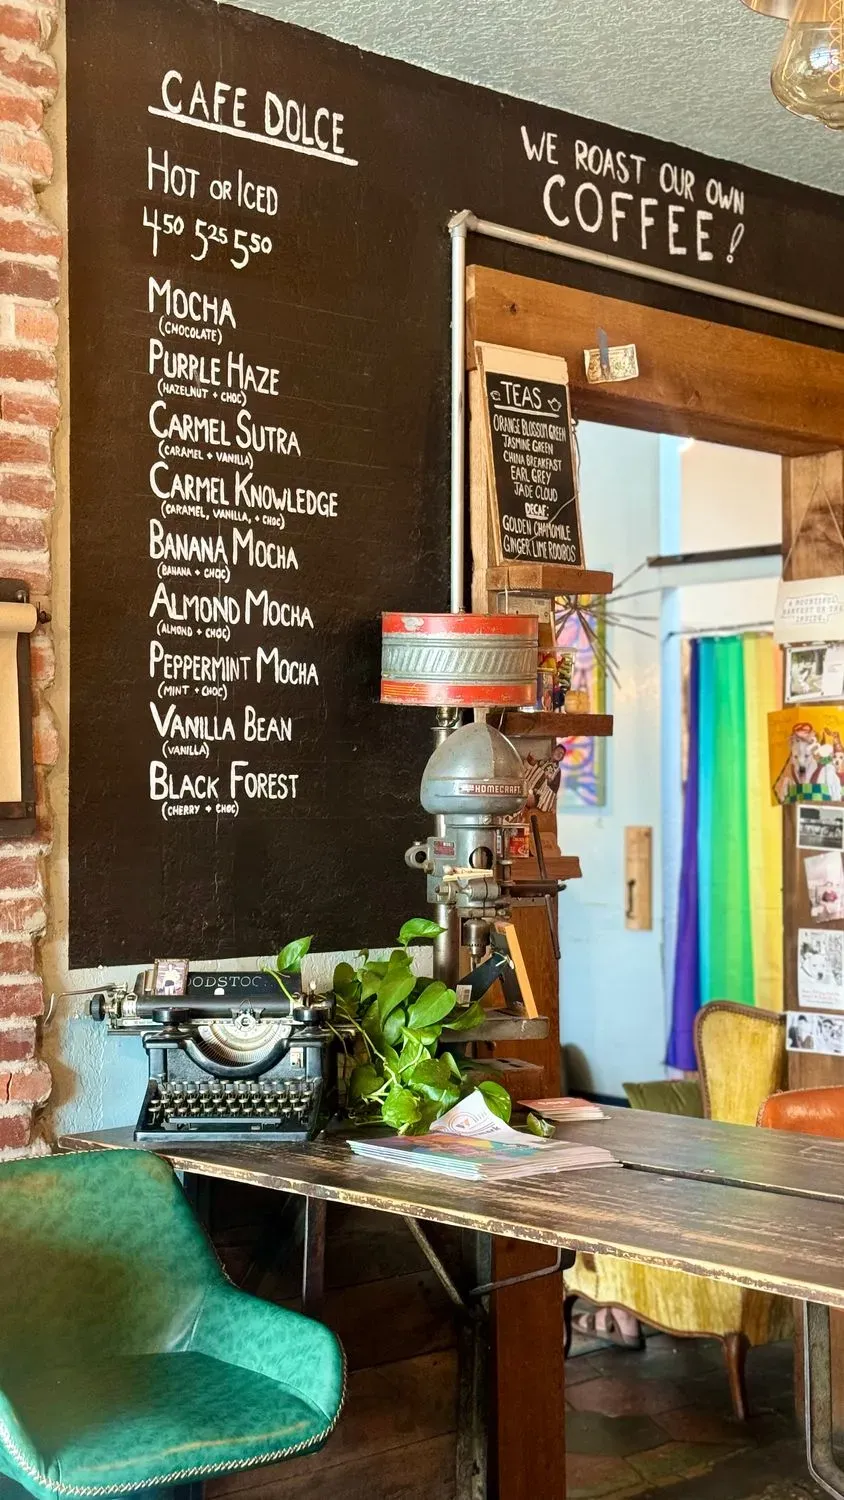 CAFE DOLCE
HOT OR ICED
450 525 550
MOCHA
(CHOCOLATE)
PURPLE HAZE
(HAZELNUT + CHOC)
CARMEL SUTRA
(CARAMEL + VANILLA)
CARMEL KNOWLEDGE
(CARAMEL, VANILLA, + CHOC)
BANANA MOCHA
(BANANA + CHOC)
ALMOND MOCHA
(ALMOND + CHOC)
PEPPERMINT MOCHA
(MINT + CHOC)
VANILLA BEAN
(VANILLA)
BLACK FOREST
(CHERRY + CHOC)
WE ROAST OUR OWN
COFFEE!
TEAS
ORANGE BLOSSOM GREEN
JASMINE GREEN
CHINA BREAKFAST
EARL GREY
JADE CLOUD
DECAF:
GOLDEN CHAMOMILE
GINGER LIME ROOIBOS
HOMECRAFT
OODSTOC